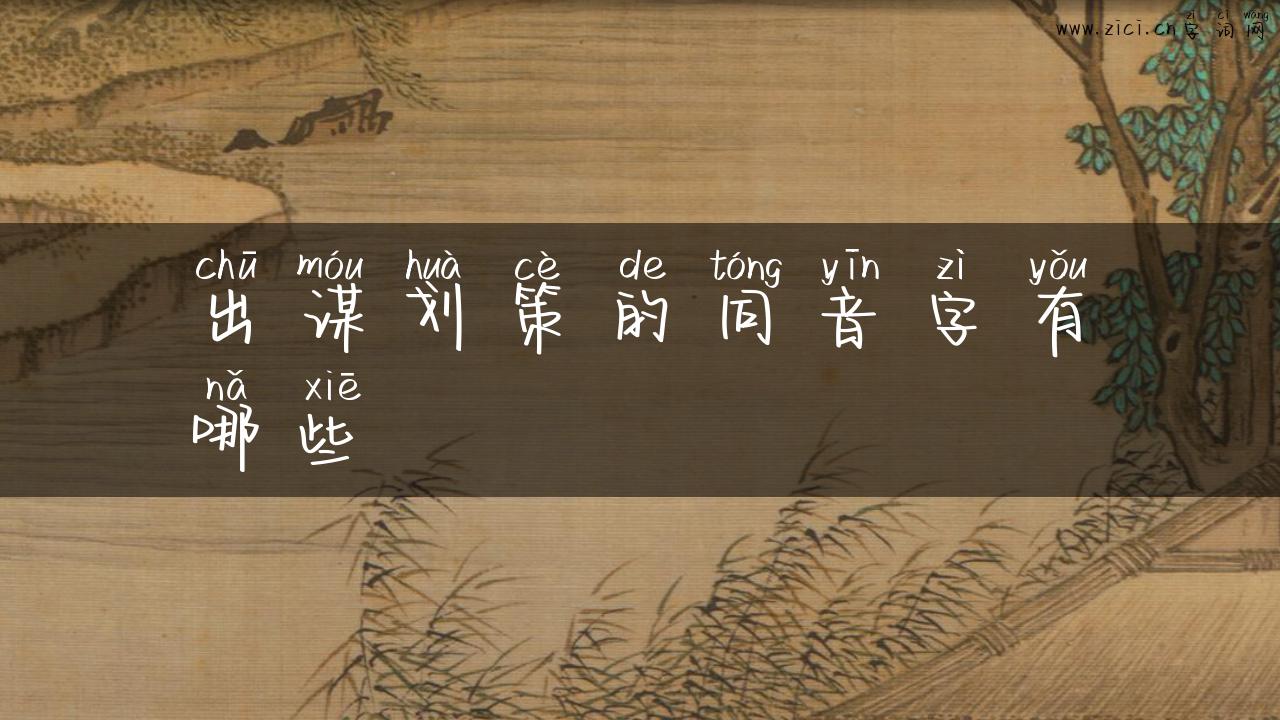 zì cí wǎng
www.zici.cn字词网
chū móu huà cè de tóng yīn zì yǒu
出谋划策的同音字有
nǎ xiē
哪些